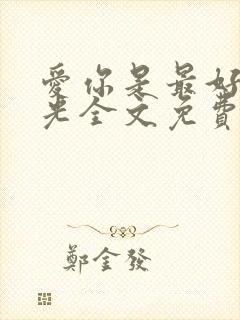 愛你是最好
光全文免費
鄭金發